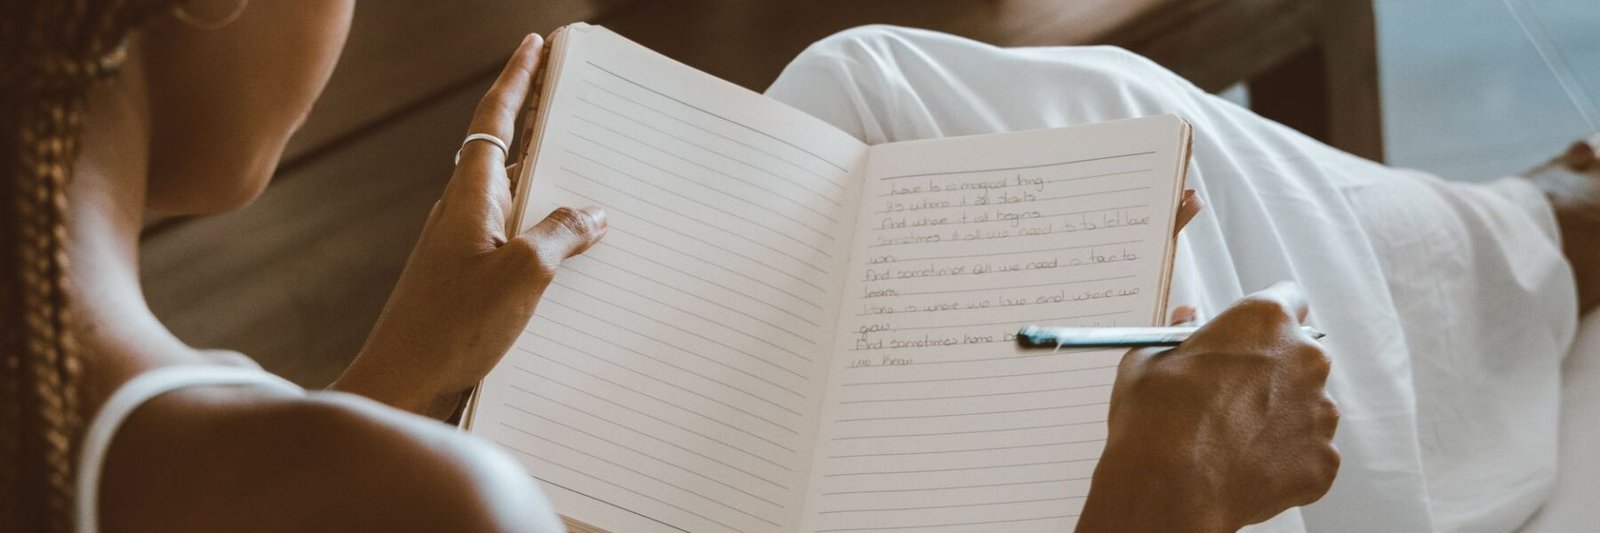 Love is a magical thing.
Its where it all starts
And where it all begins
Sometimes it all we need is to let love
win.
And sometimes all we need is to
learn
Home is where we love and where we
grow,
And sometimes home
we know